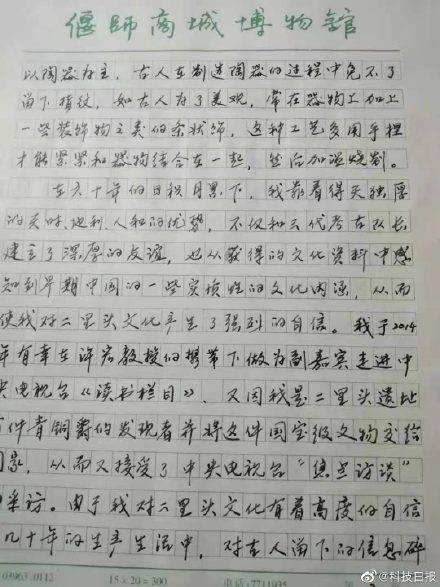 偃师商城博物館
以陶器为主，古人在制造陶器的过程中免不了
留下指纹，如古人为了美观，常在器物上加上
一些装饰物之类的条状饰，这种工艺多用手捏
才能紧紧和器物结合在一起，然后加温烧制。
在六十年的日积月累下，我靠着得天独厚
的天时、地利、人和的优势，不仅和三代考古队长
建立了深厚的友谊，也从获得的文化资料中感
知到早期中国的一些实质性的文化内涵，从而
使我对二里头文化产生了强烈的自信。我于2014
年有幸在许宏教授的携带下做为副嘉宾走进中
央电视台《读书栏目》，又因我是二里头遗址
件青铜爵的发现者并将这件国宝级文物交给
国家，从而又接受了中央电视台“焦点访谈”
采访。由于我对二里头文化有着高度的自信
几十年的生产生活中，对古人留下的信息碎
03963.0112
15×20=300
电话:7711935
@科技日报